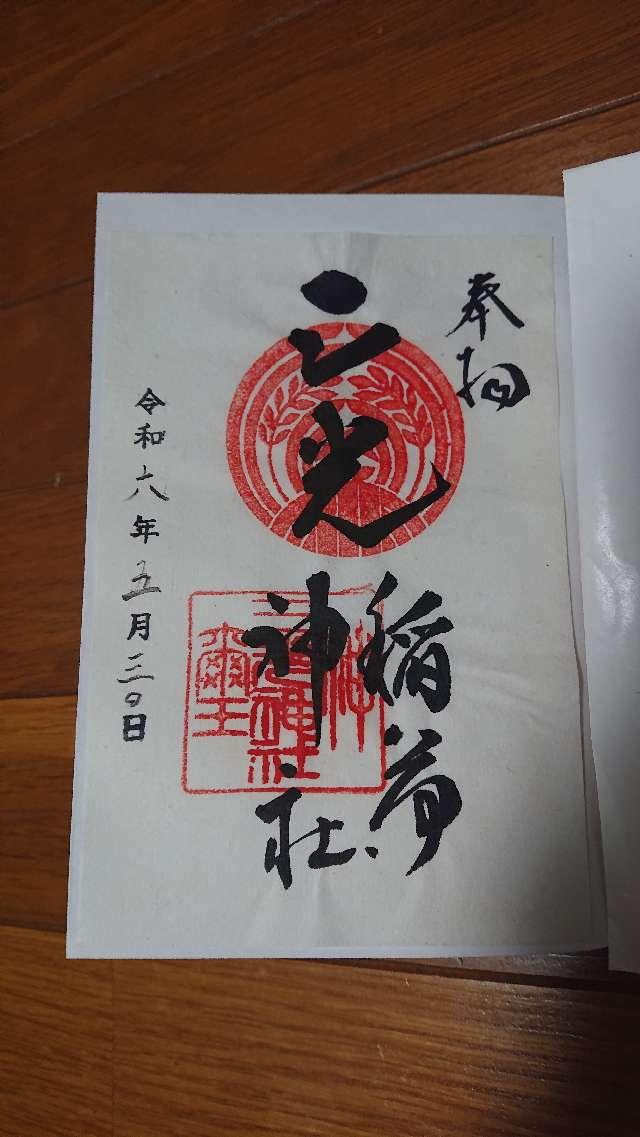 奉拝
三光
稲荷
神社
令和六年五月三〇日